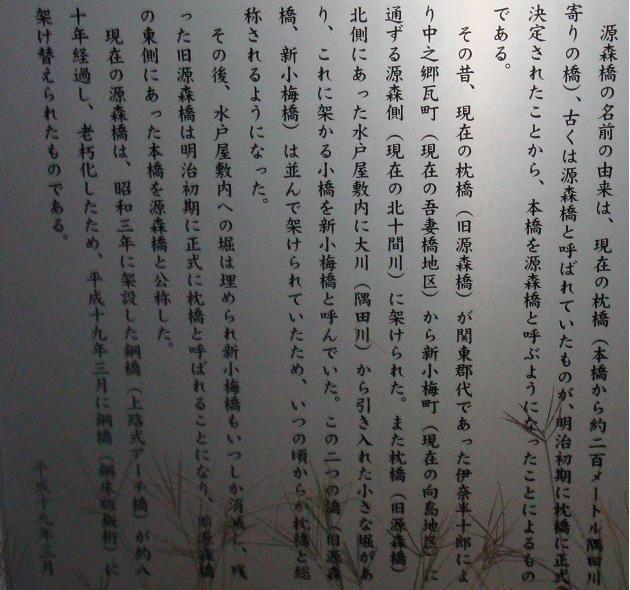 源森橋の名前の由来は、現在の枕橋（本橋から約二百メートル隅田川
寄りの橋）、古くは源森橋と呼ばれていたものが、明治初期に枕橋に正式
決定されたことから、本橋を源森橋と呼ぶようになったことによるもの
である。
その昔、現在の枕橋（旧源森橋）が関東郡代であった伊奈半十郎によ
り中之郷瓦町（現在の吾妻橋地区）から新小梅町（現在の向島地区）に
通ずる源森側（現在の北十間川）に架けられた。また枕橋（旧源森橋）
北側にあった水戸屋敷内に大川（隅田川）から引き入れた小さな堀があ
り、これに架かる小橋を新小梅橋と呼んでいた。この二つの橋（旧源森
橋、新小梅橋）は並んで架けられていたため、いつの頃からか枕橋と総
称されるようになった。
その後、水戸屋敷内への堀は埋められ新小梅橋もいつしか消滅し、残
った旧源森橋は明治初期に正式に枕橋と呼ばれることになり、旧源森橋
の東側にあった本橋を源森橋と公称した。
現在の源森橋は、昭和三年に架設した鋼橋（上路式アーチ橋）が約八
十年経過し、老朽化したため、平成十九年三月に鋼橋（鋼床版鈑桁）に
架け替えられたものである。
平成十九年三月